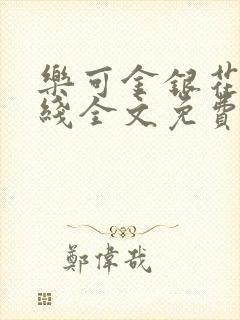 樂可金銀花
綫全文免費
鄭偉哉